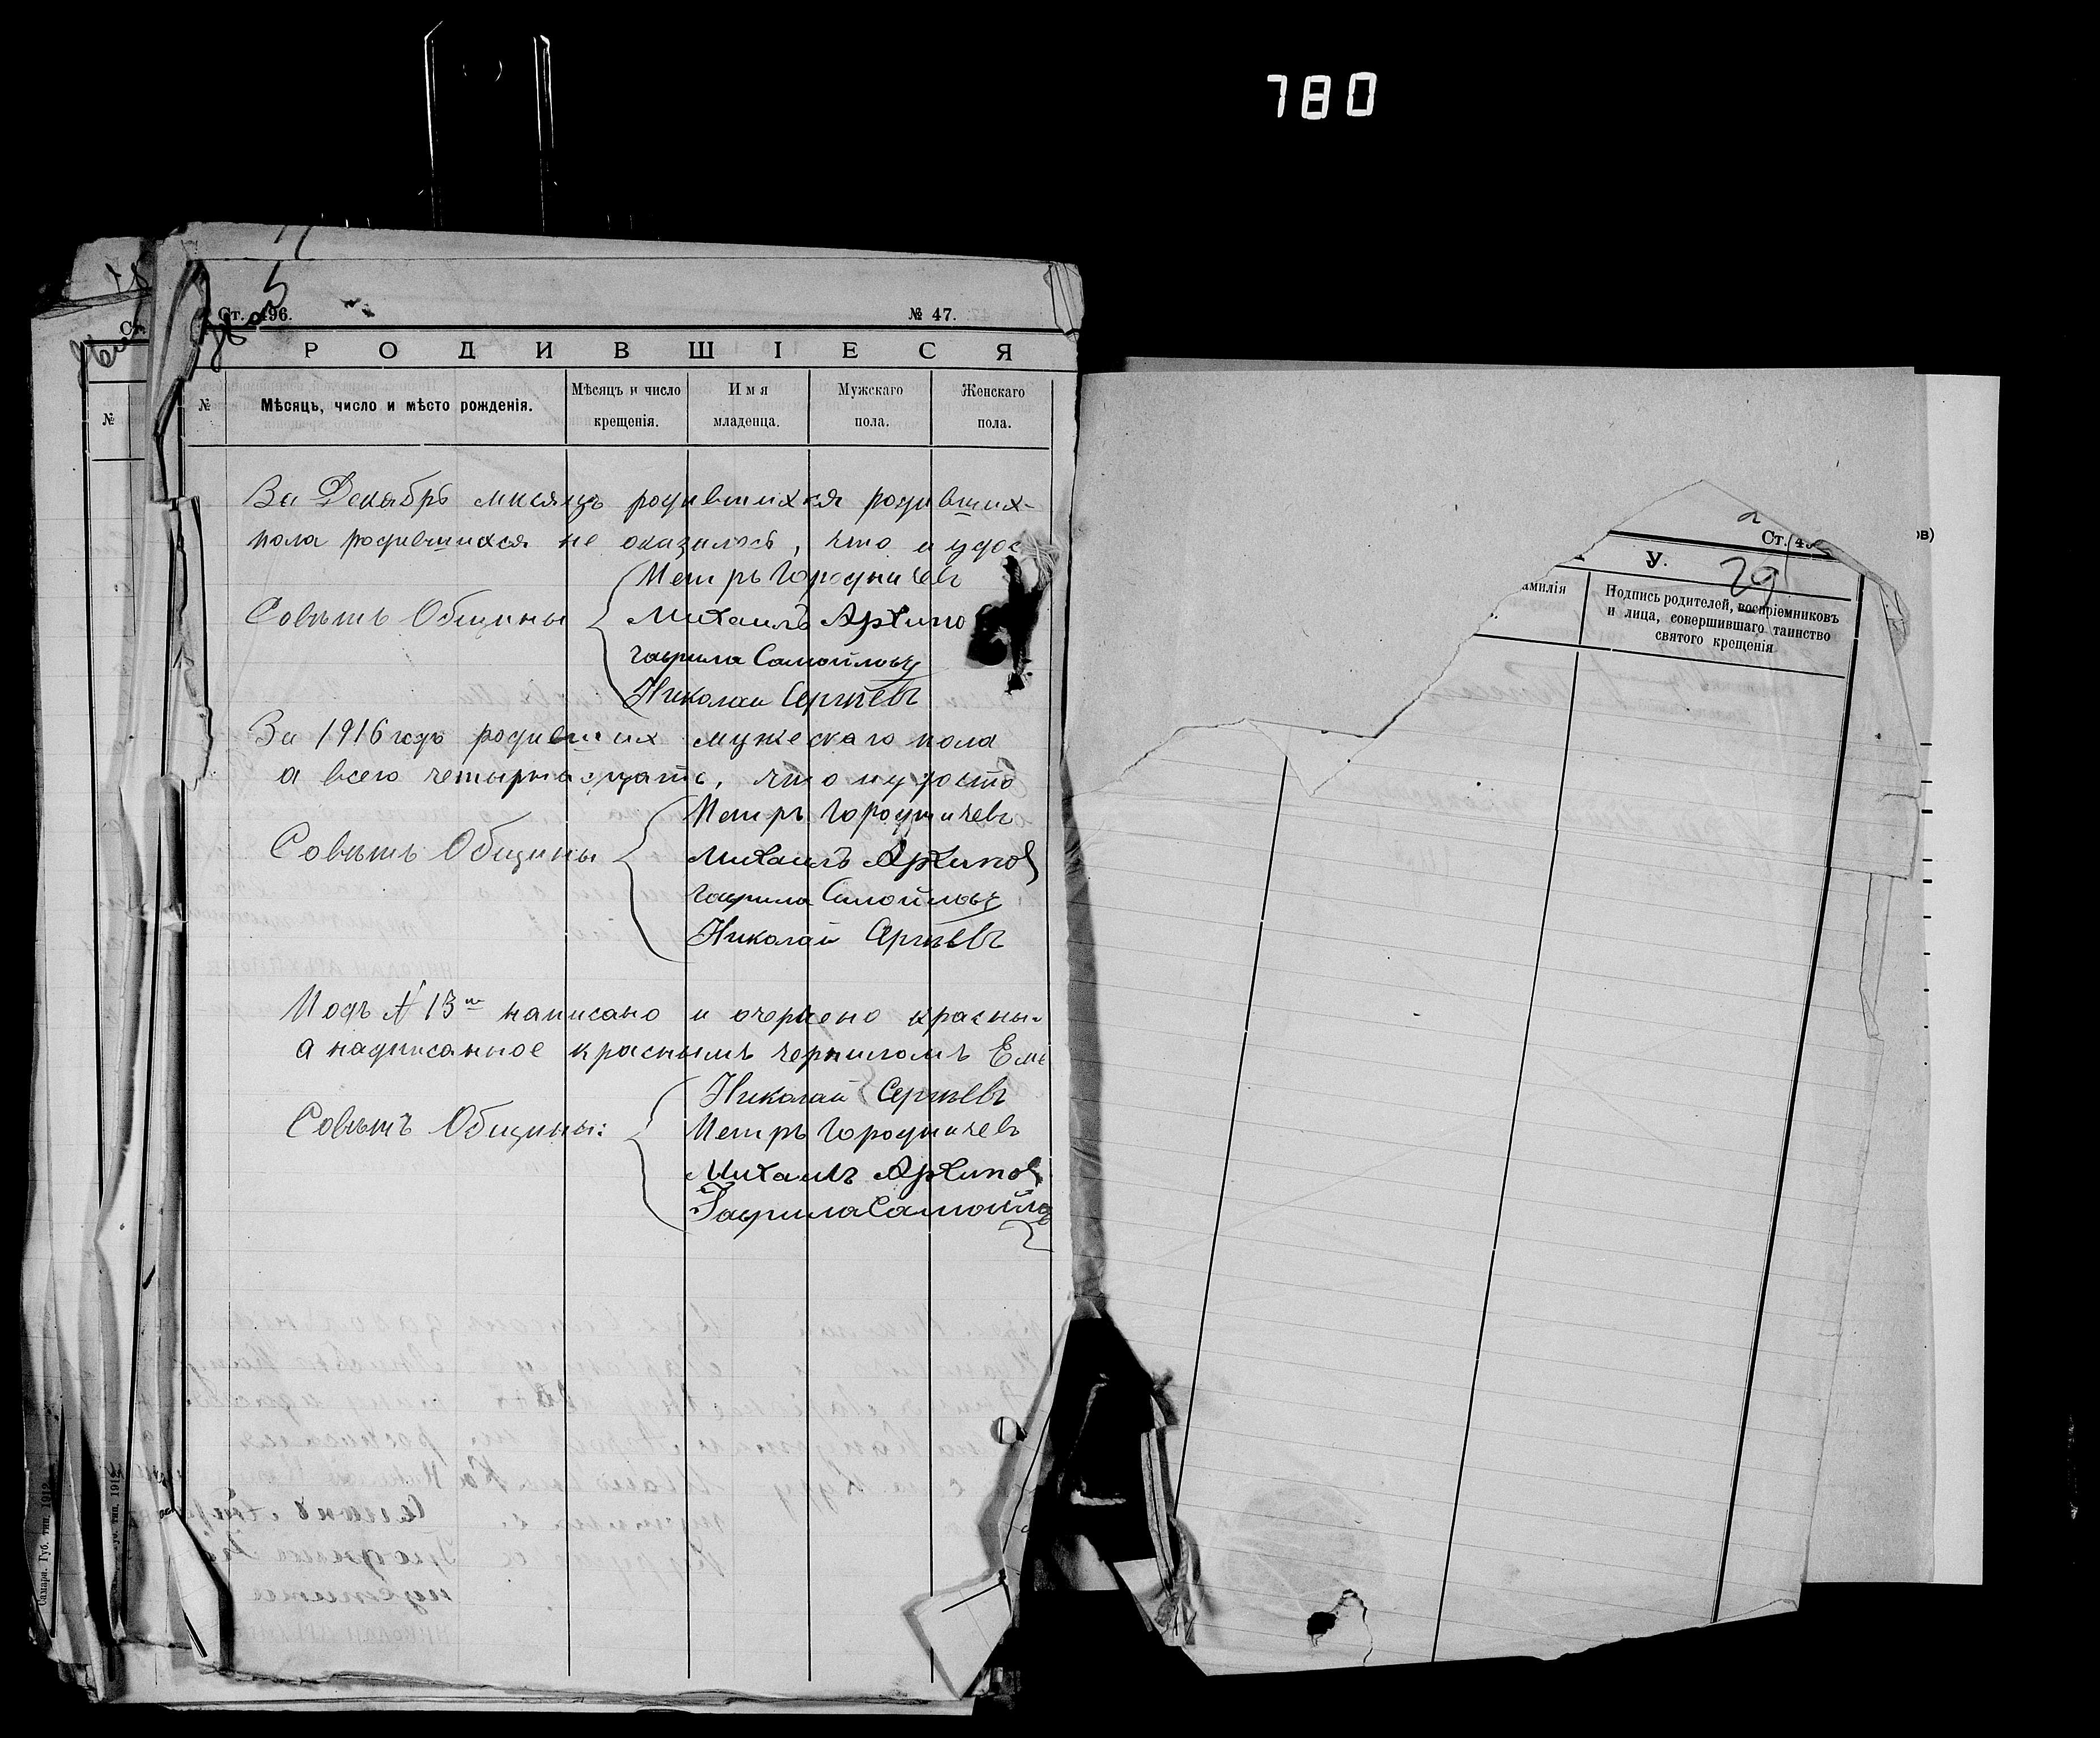 780
Ст. 496.
№ 47.
РОДИВШІЕСЯ
№ Мѣсяцъ, число и мѣсто рожденія. Мѣсяцъ и число крещенія. Имя младенца. Мужскаго пола. Женскаго пола.
За Декабрь мисяцъ родившихся родивших-
пола родившихся не оказалось, что и удос
Петръ Городничевъ
Совѣтъ Общины Михаилъ Архипо
Гаврила Самойловъ
Николай Сергѣевъ
За 1916 годъ родивших мужескаго пола
а всего четырнадцать, что и удосто
Петръ Городничевъ
Совѣтъ Общины Михаилъ Архипов
Гаврила Самойловъ
Николай Сергѣевъ
Подъ № 13м написано и очеркено красны
а надписанное краснымъ черниломъ Ем
Николай Сергѣевъ
Совѣтъ Общины: Петръ Городничевъ
Михаилъ Архипов
Гаврила Самойлов
Ст. 49
У.
29
амилія
Подпись родителей, воспріемниковъ
и лица, совершившаго таинство
святого крещенія.
ов)
№
Самарн. Губ. тип. 1912